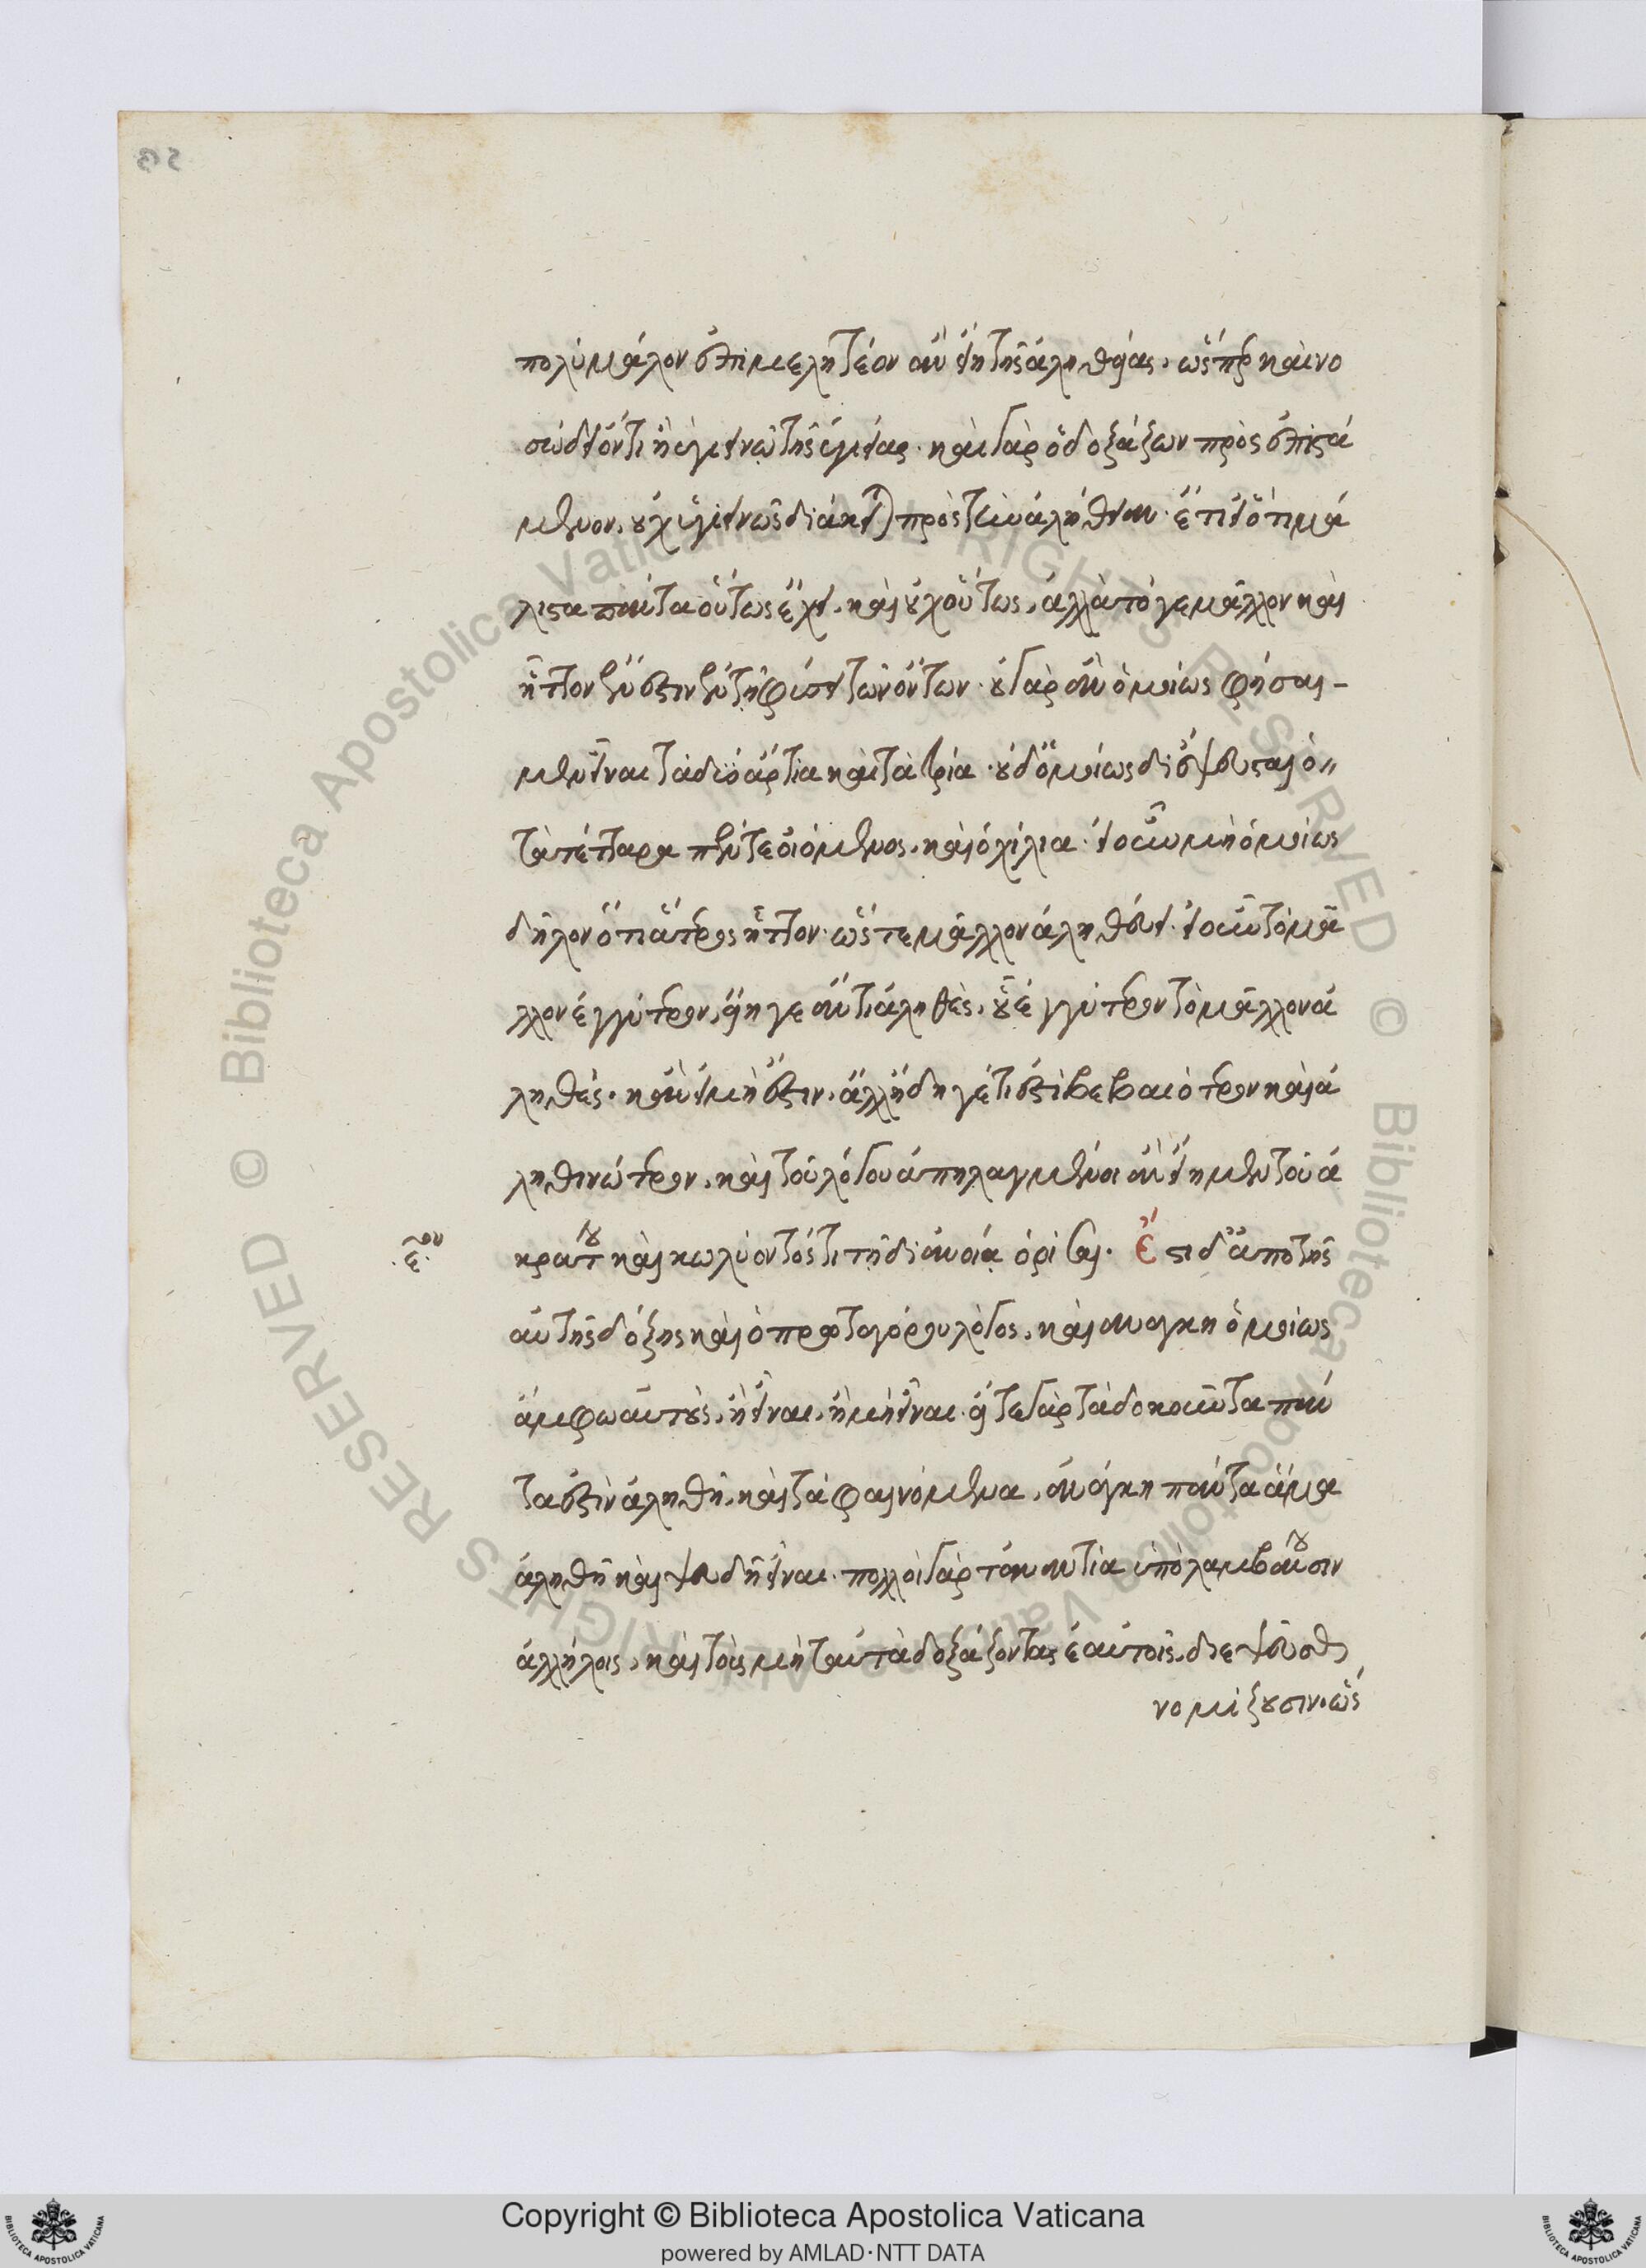 πολὺ μάλον ἐπιμελητέον ἂν εἴη τῆς ἀληθείας. ὥσπερ καὶ νο
σώδει ὄντι ἢ ὑγιεινῷ τῆς ὑγιείας. καὶ γὰρ ὁ δοξάζων πρὸς ἐπιστά
μενον, οὐχ ὑγιεινῶς διάκειται πρὸς τὴν ἀλήθειαν. ἔτι εἰ ὅτι μά
λιστα πάντα οὕτως ἔχει, καὶ οὐχ οὕτως, ἀλλὰ τό γε μᾶλλον καὶ
ἧττον ἔνεστιν ἐν τῇ φύσει τῶν ὄντων. οὐ γὰρ ἂν ὁμοίως φήσαι-
μεν εἶναι τὰ δύο ἄρτια καὶ τὰ τρία. οὐδ' ὁμοίως διέψευσται ὁ
τὰ τέτταρα πέντε οἰόμενος, καὶ ὁ χίλια. εἰ οὖν μὴ ὁμοίως
δῆλον ὅτι ἅτερος ἧττον. ὥστε μᾶλλον ἀληθεύει. εἰ οὖν τὸ μᾶ
λλον ἐγγύτερον, εἴη γε ἄν τι ἀληθὲς, οὗ ἐγγύτερον τὸ μᾶλλον ἀ
ληθές. κἂν εἰ μὴ ἔστιν, ἀλλ' ἤδη γέ τι ἐστὶ βεβαιότερον καὶ ἀ
ληθινώτερον, καὶ τοῦ λόγου ἀπηλαγμένοι ἂν εἴημεν τοῦ ἀ
κράτου καὶ κωλύοντός τι τῇ διανοίᾳ ὁρίσαι. Ἔστι δ' ἀπὸ τῆς
αὐτῆς δόξης καὶ ὁ πρωταγόρου λόγος, καὶ ἀνάγκη ὁμοίως
ἄμφω αὐτοὺς, ἢ εἶναι, ἢ μὴ εἶναι. εἴτε γὰρ τὰ δοκοῦντα πάν
τα ἐστὶν ἀληθῆ, καὶ τὰ φαινόμενα, ἀνάγκη πάντα ἅμα
ἀληθῆ καὶ ψευδῆ εἶναι. πολλοὶ γὰρ τἀναντία ὑπολαμβάνουσιν
ἀλλήλοις, καὶ τοὺς μὴ ταὐτὰ δοξάζοντας ἑαυτοῖς, διεψεῦσθαι
νομίζουσιν. ὥσ